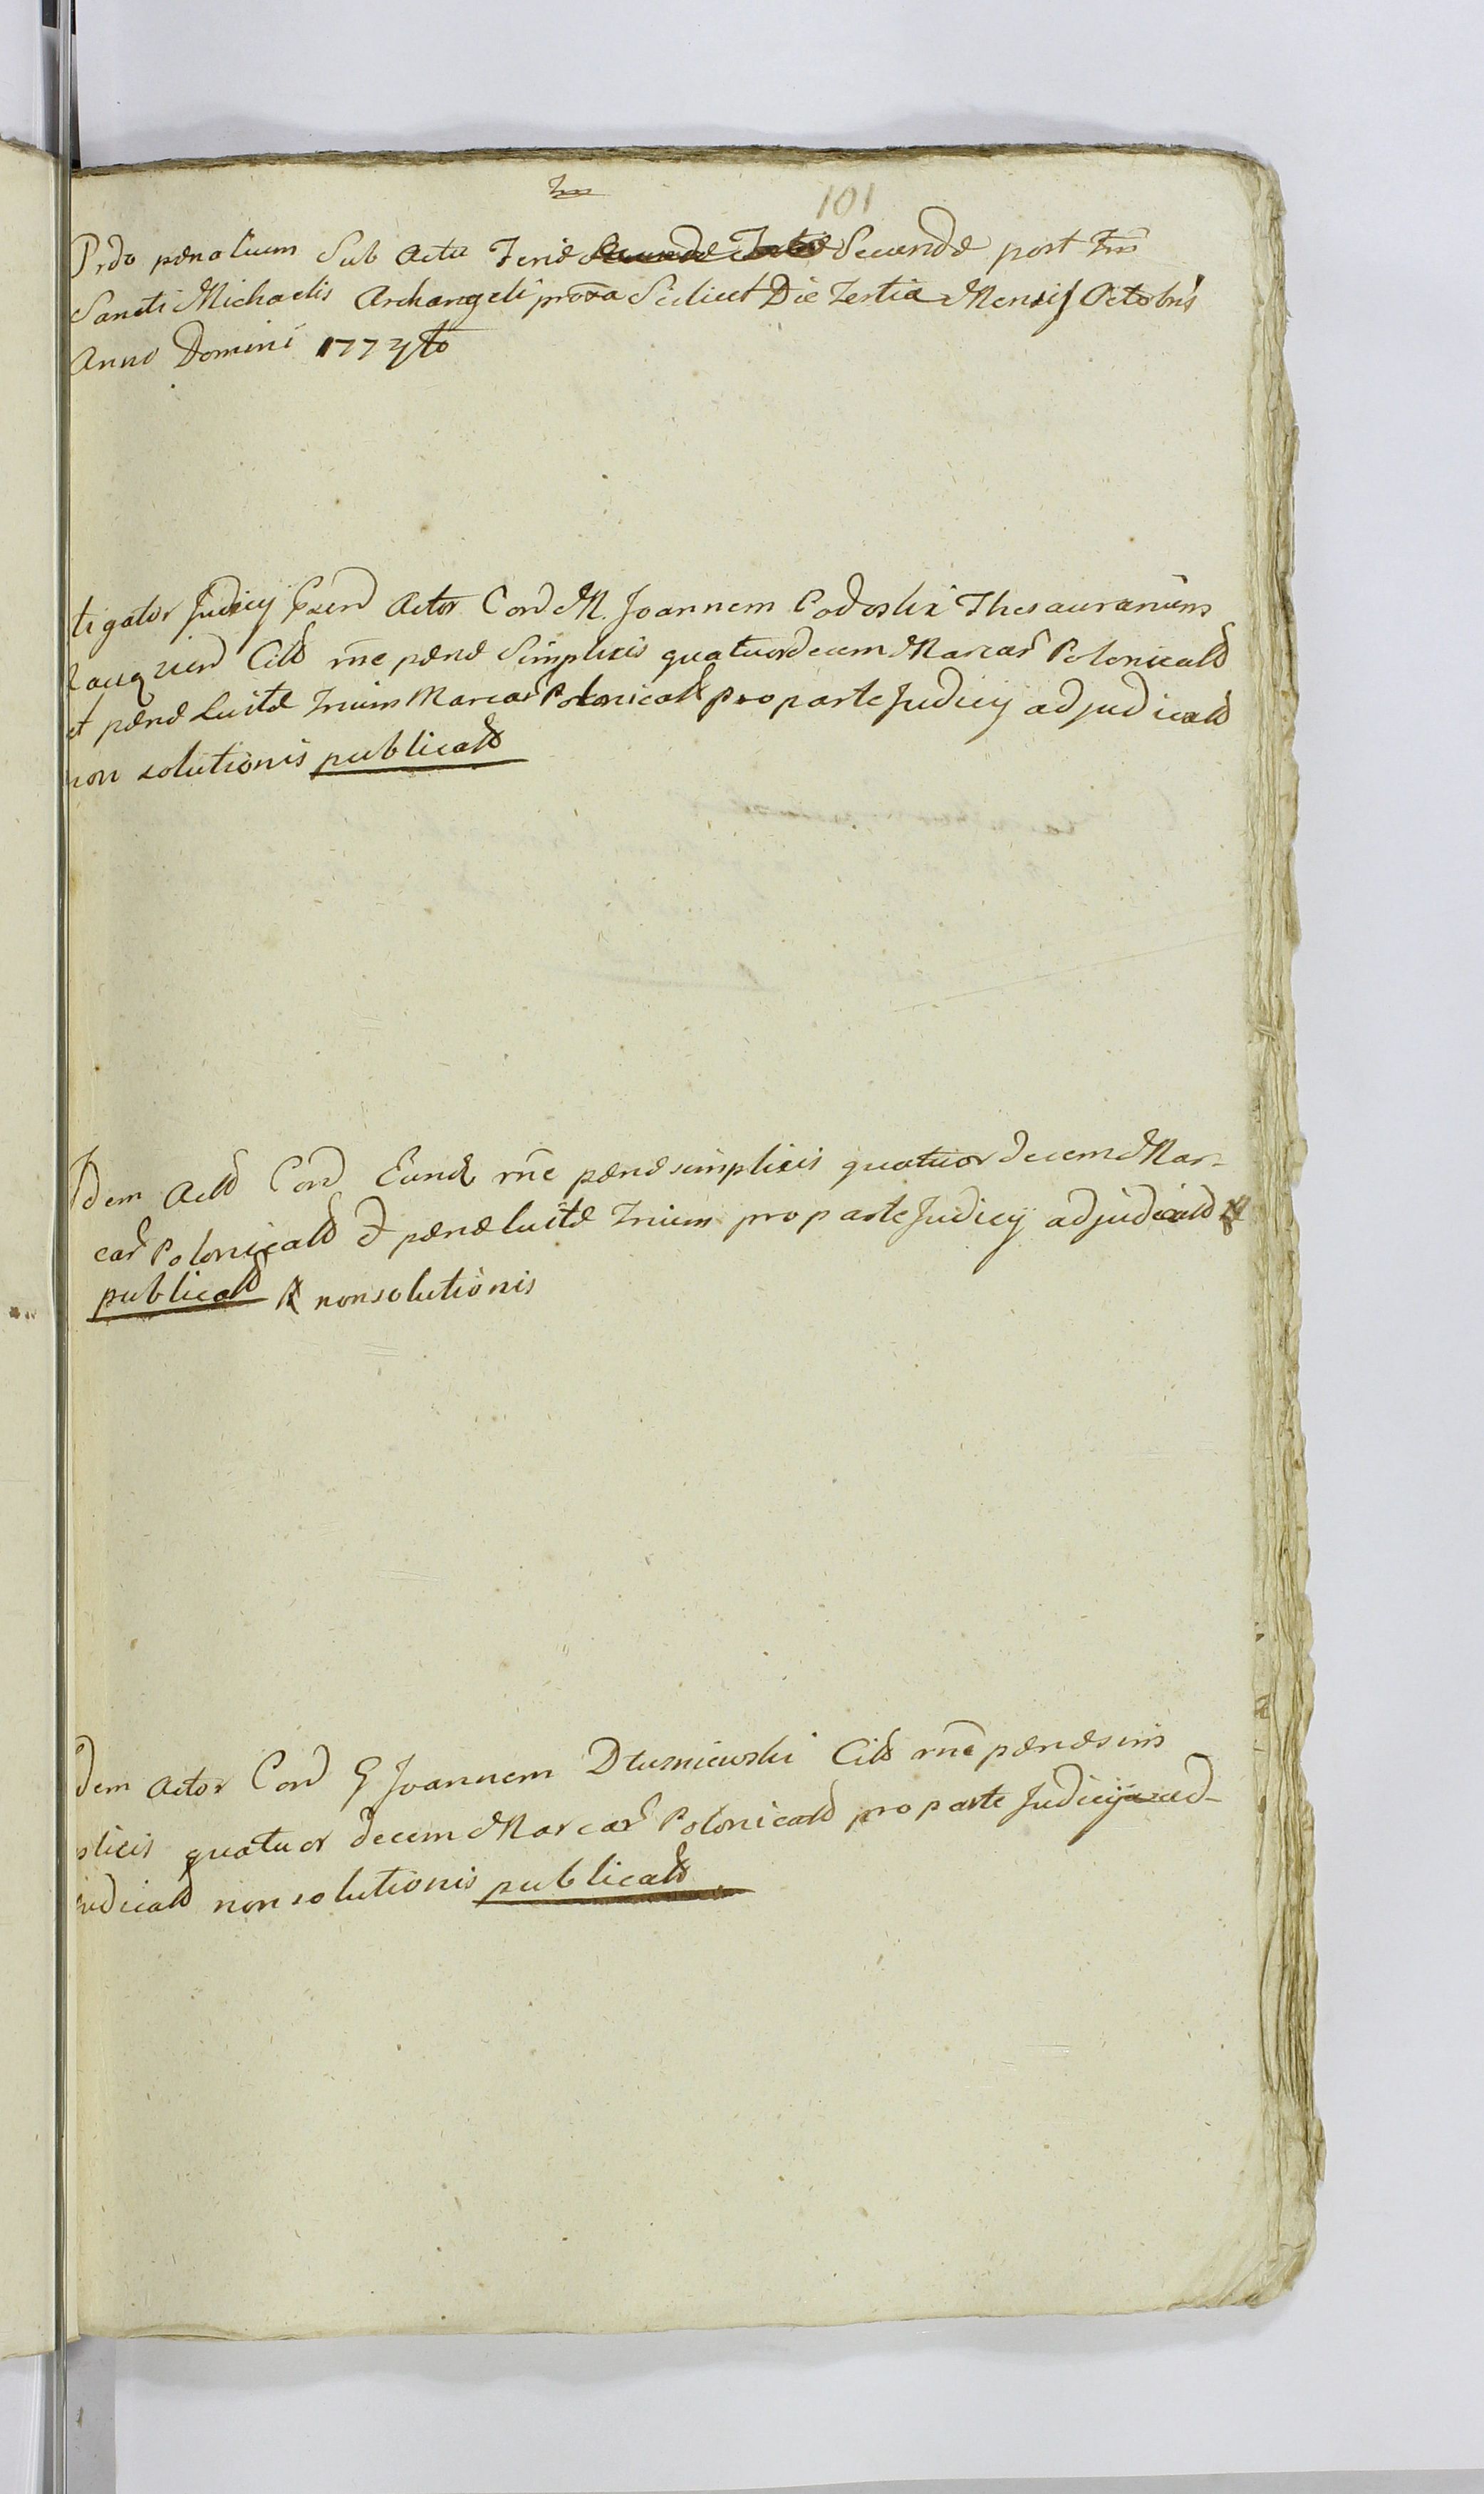 101
Prdo penalium Sub Actu Ferie Secunde post Fm
Sancti Michaelis Archangeli proxa Scilicet Die Tertia Mensis Octobris
Anno Domini 177
tigator Judicij Actor Cond M. Joannem Podoski Thesaurarium
Citd rne pene Simplicis quatuordecem Marcar Polonicald
et pene luite Trium Marcar Polonicald pro parte Judicij adjudicald
non solutionis publicald
dem Actd Cond Eund rne pene simplicis quatuor decem Mar-
car Polonicald & pene luite Trium pro parte Judicij adjudicald
publicald nonsolutionis
dem Actor Cond G Joannem Dłuzniewski Citd rne pene sim
plicis quatuor decem Marcar Polonicald pro parte Judicij ad-
judicald non solutionis publicald